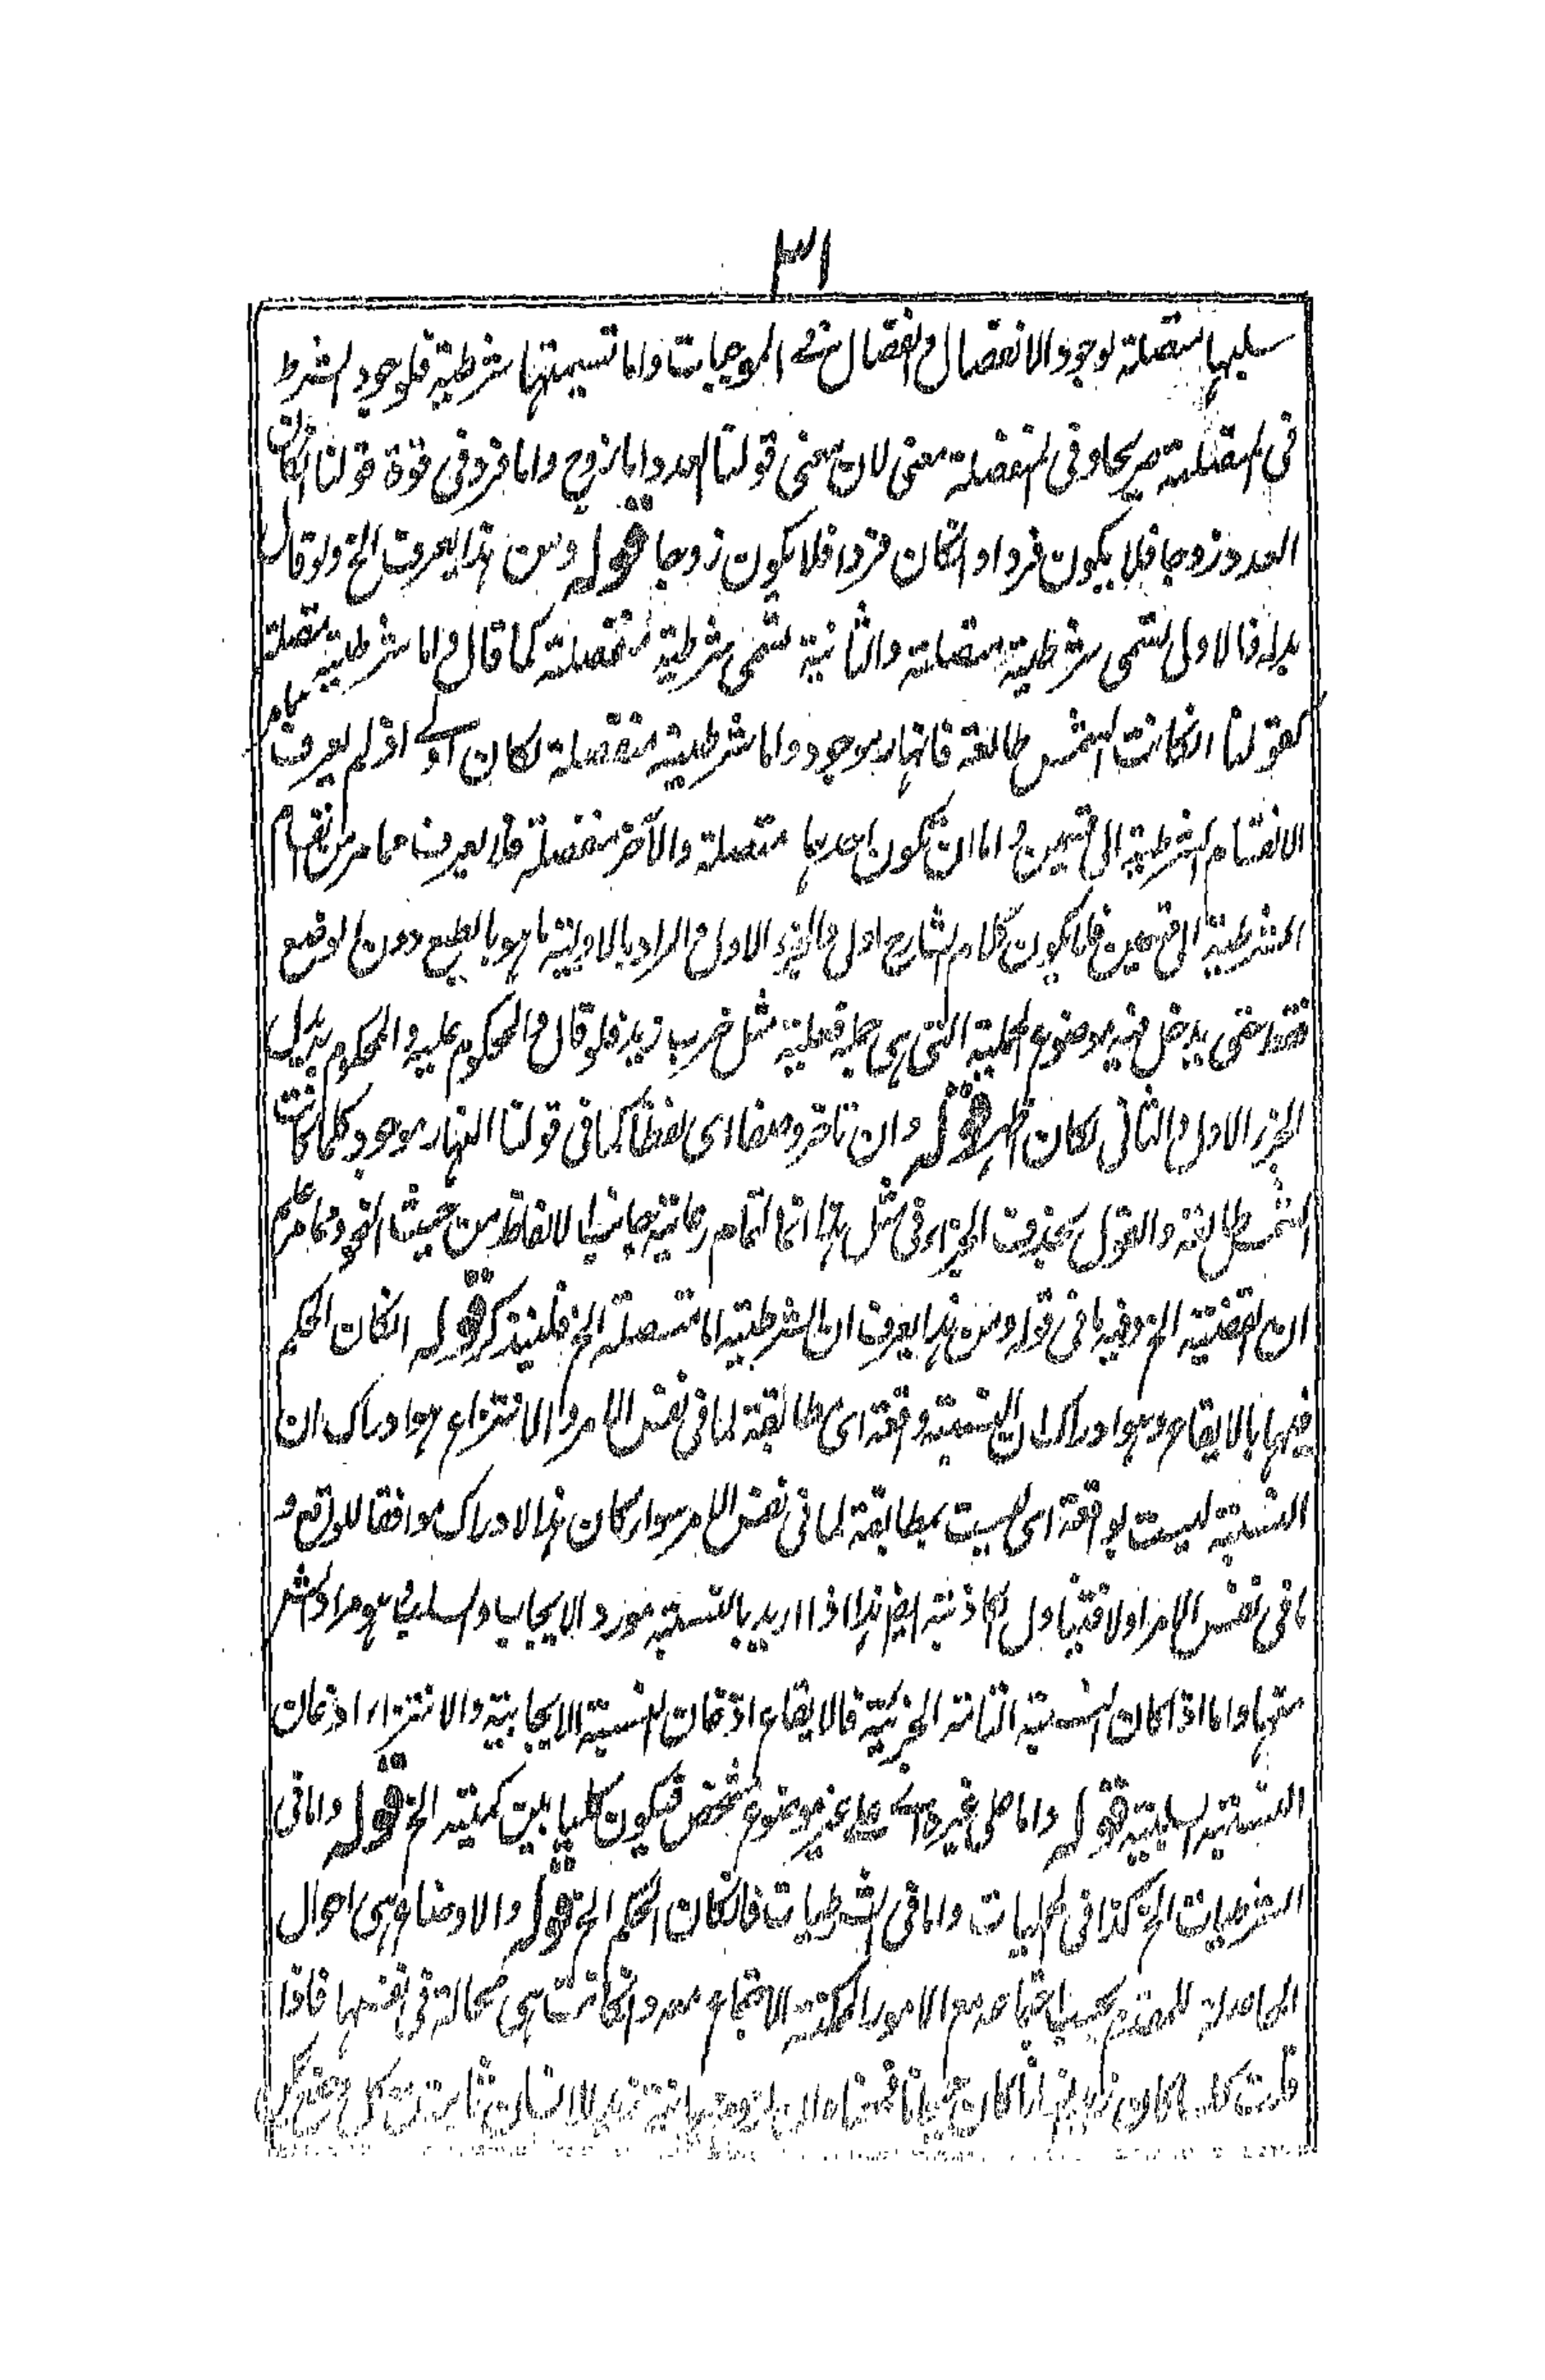 ٣١
سلبها متصلة لوجود الانفصال والفصال في الموجبات واما تسميتها شرطية فلوجود الشرط
فى المتصلة صريحا وفى المنفصلة معنى لان معنى قولنا العدد اما زوج واما فرد فى قوة قولنا انكان
العدد زوجا فلا يكون فردا وانكان فردا فلا يكون زوجا قوله ومن هذا يعرف الخ ولو قال
بدله فالاولى تسمى شرطية متصلة والثانية تسمى شرطية منفصلة كما قال واما شرطية متصلة
كقولنا انكانت الشمس طالعة فالنهار موجود واما شرطية منفصلة لكان اولے اذ لم يعرف
الانقسام الشرطية الى قسمين و اما ان تكون احدهما متصلة والآخر منفصلة فلا يعرف مما مر من انقسام
الشرطية الى قسمين فلا يكون كلام الشارح اولى والجزء الاول والمراد بالاولية ما هو بالطبع دون الوضع
فقط حتى يدخل فيه موضوع الحملية التى هى جملة فعلية مثل ضرب زيد فلو قال والمحكوم عليه والمحكوم به بدل
الجزء الاول والثانى لكان اظهر قوله وان تاخر وضعا اى لفظا كما فى قولنا النهار موجود كلما كانت
الشمس طالعة والقول بحذف الجزاء فى مثل هذا انما التمام رعاية بجانب الالفاظ من حيث النحو ومما مر علم
ان القضية الخ وفيه ما فى قوله ومن هذا يعرف ان الشرطية اما متصلة الخ فليتذكر قوله انكان الحكم
فيها بالايقاع وهو ادراك ان النسبة واقعة اى مطابقة لما فى نفس الامر والانتزاع هو ادراك ان
النسبة ليست بواقعة اى ليست بمطابقة لما فى نفس الامر سواء كان هذا الادراك موافقا للواقع و
ما فى نفس الامر اولا فتناول الكاذبة ايضا هذا اذا اريد بالنسبة مورد الايجاب والسلب كما هو مراد الشر
منها واما اذا كان النسبة التامة الخبرية فالايقاع اذعان النسبة الايجابية والانتزاع اذعان
النسبة السلبية قوله واما على غيره اے على غير موضوع مشخص فيكون كليا بين كميته الخ قوله واما فى
الشرطيات الخ كذا فى الحمليات واما فى الشرطيات فانكان الحكم الخ قوله والاوضاع هى احوال
الحاصلة للمقدم بحسب اجتماعه مع الامور الممكنة الاجتماع معه وانكانت هى محالة فى انفسها فاذا
قلت كلما كان زيد انسانا كان حيوانا